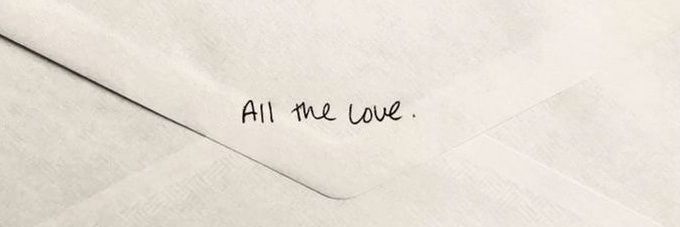 All the love.